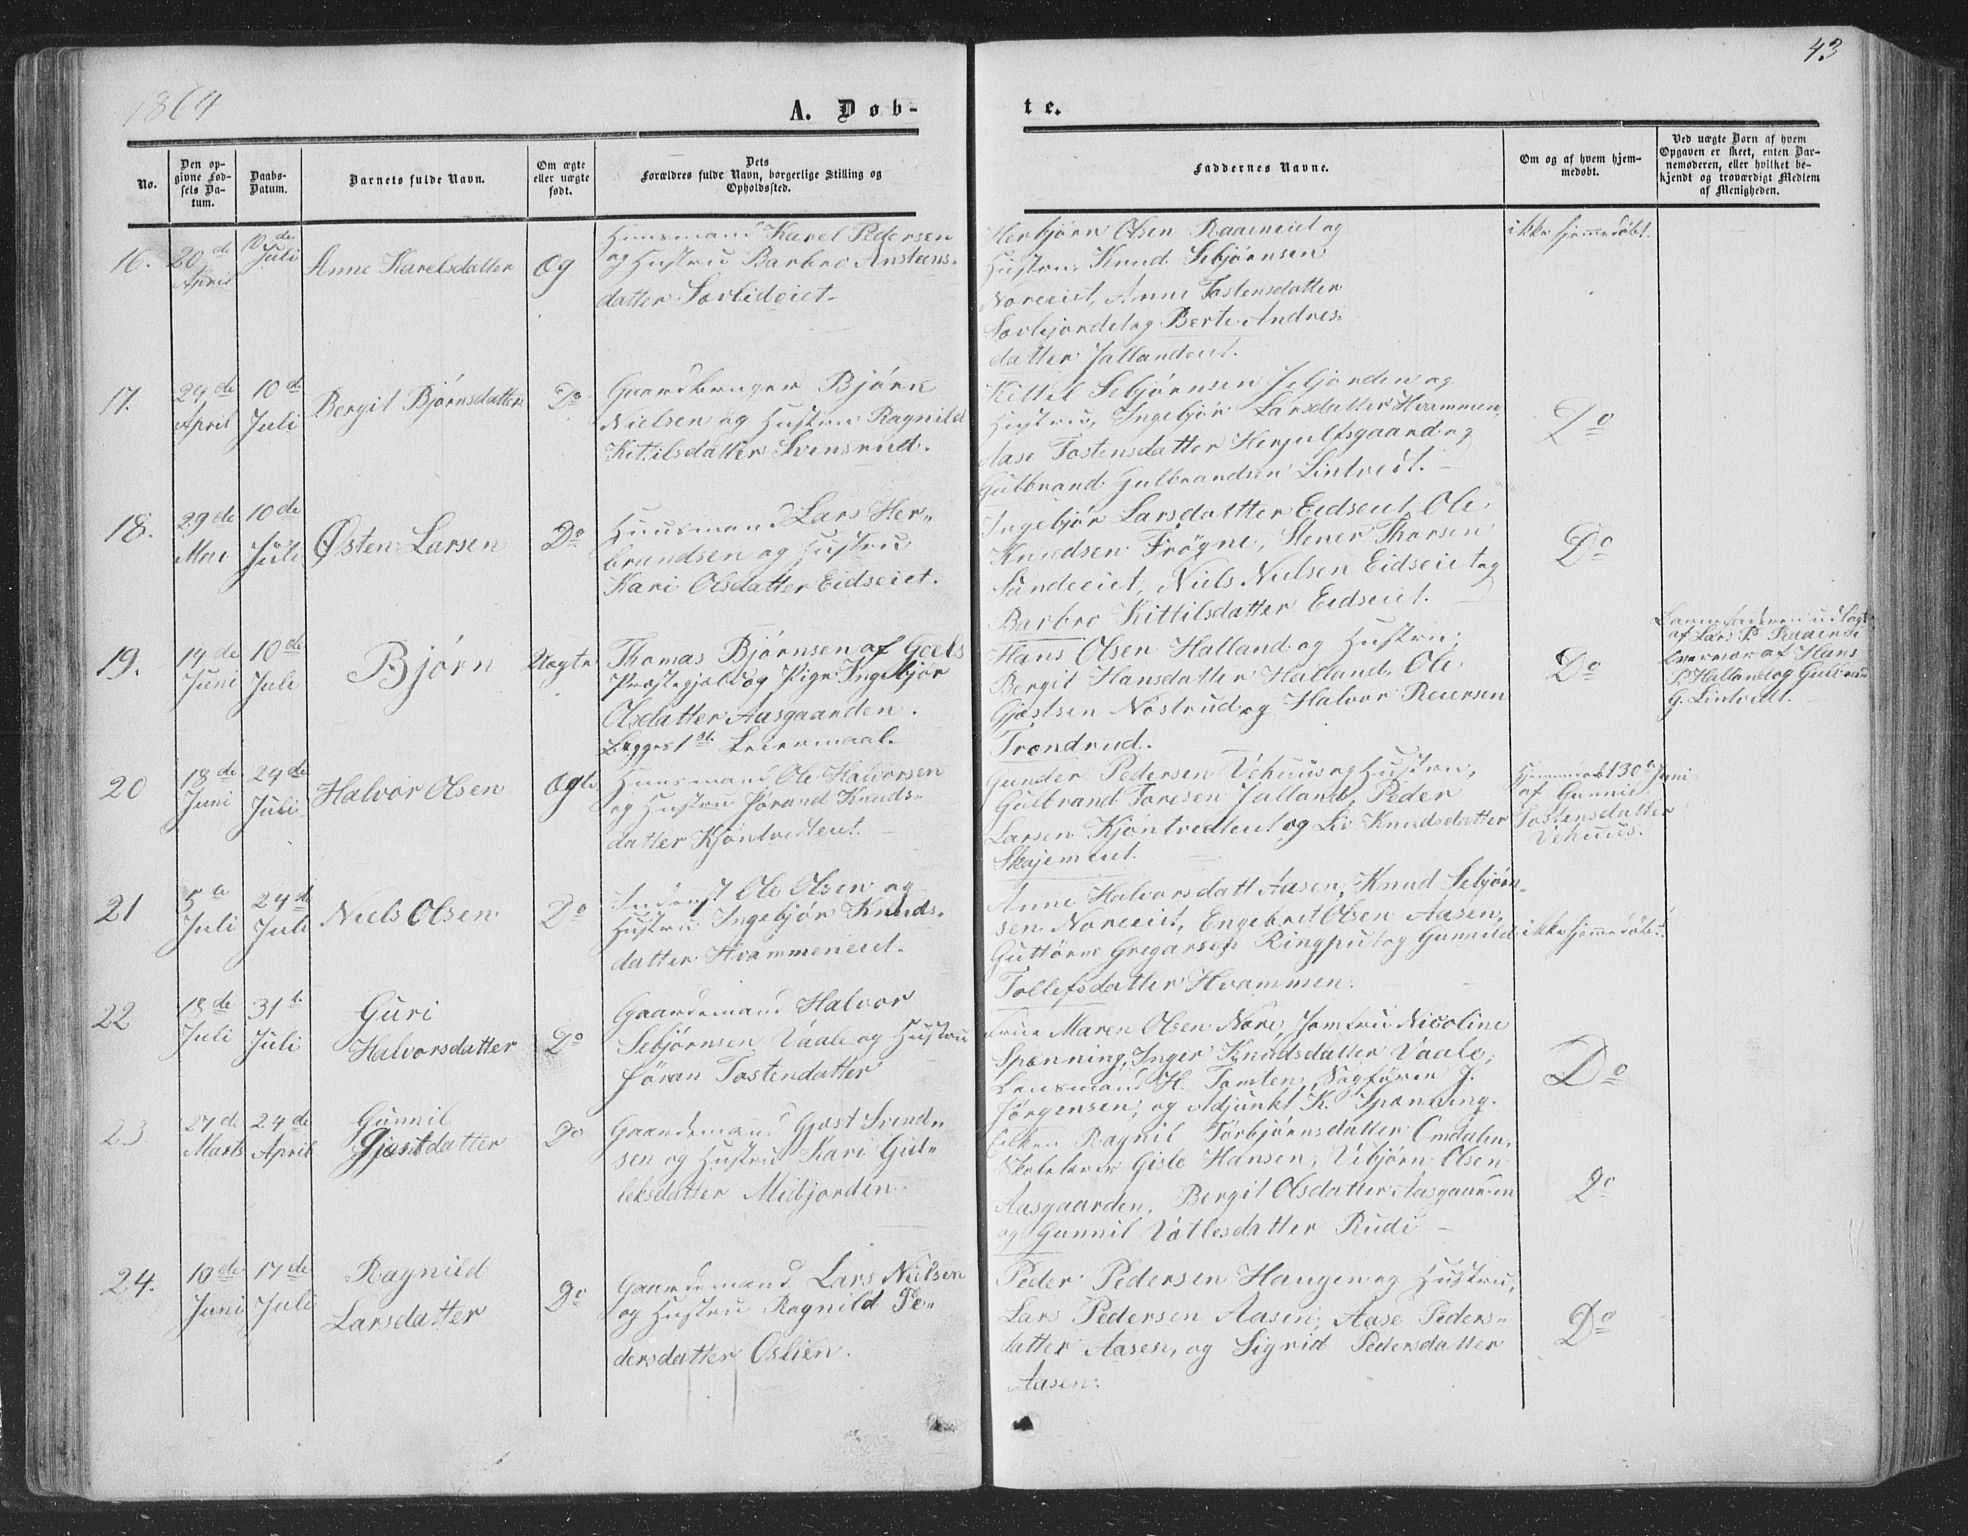 43
1864
A. Døb-
te.
No.
Den op-
givne Fød-
sels Da-
tum.
Daabs-
Datum.
Barnets fulde Navn.
Om ægte
eller uægte
født.
Dets
Forældres fulde Navn, borgerlige Stilling og
Opholdssted.
Faddernes Navne.
Om og af hvem hjem-
medøbt.
Ved uægte Børn af hvem
Opgaven er skeet, enten Bar-
nemoderen, eller hvilket be-
kjendt og troværdigt Medlem
af Menigheden.
16.
20de
April
10de
Juli
Anne Karelsdatter
Æg
Huusmand Karel Pedersen
og Hustru Barbro Anstens-
datter Sørlideiet
Herbjørn Olsen Raaeneiet og
Hustru, Knud Sebjørnsen
Noreeiet, Anne Tostensdatter
og Berte Andres-
datter Jallandeiet.
ikke hjemmedøbt.
17.
24de
April
10de
Juli
Bergit Bjørnsdatter
Do
Gaardbruger Bjørn
Nielsen og Hustru Ragnild
Kittilsdatter Svensrud.
Kittil Sebjørnsen og
Hustru, Ingebjør Larsdatter Hvammen,
Aase Tostensdatter Herjulfsgaard og
Gulbrand Gulbrandsen Lintvedt.
Do
18.
29de
Mai
10de
Juli
Østen Larsen
Do
Huusmand Lars Her-
brandsen og Hustru
Kari Olsdatter Eidseiet.
Ingebjør Larsdatter Eidseiet, Ole
Knudsen Frøgne, Stener Thorsen
Sandeeiet, Niels Nielsen Eidseiet og
Barbro Kittilsdatter Eidseiet.
Do
19.
14de
Juni
10de
Juli
Bjørn
Uægte
Thomas Bjørnsen af Goels
Præstegjeld og Pige Ingebjør
Olsdatter Aasgaarden.
Begges 1st Leiermaal.
Hans Olsen Halland og Hustru,
Bergit Hansdatter Halland, Ole
Gjøstsen Nøstrud og Halvor Reiersen
Trøndrud.
Do
Barnefaderen udlagt
af Lars P.
af Hans
P. Halland og Gulbrand
G. Lintvedt.
20
18de
Juni
24de
Juli
Halvor Olsen
Ægte
Huusmand Ole Halvorsen
og Hustru Jørand Knuds-
datter Kjøntvedteiet.
Gunder Pedersen Vehuus og Hustru,
Gulbrand Toresen Jalland, Peder
Larsen Kjøntvedteiet og Liv Knudsdatter
Skajemeiet.
Hjemmedøbt 30te Juni
af Gunnil
Tostensdatter
Vehuus.
21
5te
Juli
24de
Juli
Niels Olsen
Do
Inderst Ole Olsen og
Hustru Ingebjør Knuds-
datter Hvammeneiet.
Anne Halvorsdatt Aasen, Knud Sebjørn-
sen Noreeiet, Engebret Olsen Aasen,
Guttorm Gregarsen Ringpul og Gunnild
Tollefsdatter Hvammen.
ikke hjemmedøbt.
22
18de
Juli
31te
Juli
Guri
Halvorsdatter
Do
Gaardemand Halvor
Sebjørnsen Vaale og Hustru
Jøran Tostendatter
Frue Maren Olsen Nore, Jomfru Nicoline
Spænning, Inger Knudsdatter Vaale,
Lensmand H. Tomten, Sagfører J.
Jørgensen, og Adjunkt K. Spænning.
Do
23
27de
Marts
24de
April
Gunnil
Gjøstdatter
Do
Gaardemand Gjøst Svend-
sen og Hustru Kari Gul-
leksdatter Midjorden.
Enken Ragnil Torbjørnsdatter Omdalen,
Skolelærer Gisle Hansen, Vebjørn Olsen
Aasgaarden, Bergit Olsdatter Aasgaarden
og Gunnil Vøtlesdatter Rudi
Do
24.
10de
Juni
17de
Juli
Ragnild
Larsdatter
Do
Gaardemand Lars Nielsen
og Hustru Ragnild Pe-
dersdatter Oslien.
Peder Pedersen Haugen og Hustru,
Lars Pedersen Aasen, Aase Peders-
datter Aasen, og Sigrid Pedersdatter
Aasen.
Do